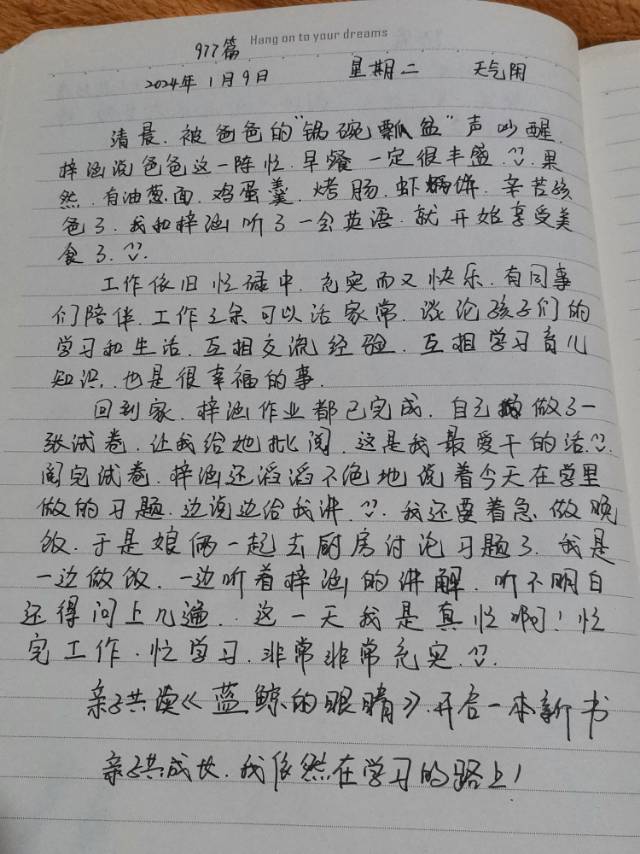 Hang on to your dreams
977篇
2024年1月9日 星期二 天气阴
清晨.被爸爸的"锅碗瓢盆"声吵醒.
梓涵说爸爸这一阵忙.早餐一定很丰盛.果
然.有油葱面.鸡蛋羹.烤肠.虾饼.辛苦孩
爸了.我和梓涵听了一会英语.就开始享受美
食了.
工作依旧忙碌中.充实而又快乐.有同事
们陪伴.工作之余可以话家常.谈论孩子们的
学习和生活.互相交流经验.互相学习育儿
知识.也是很幸福的事.
回到家.梓涵作业都已完成.自己做了一
张试卷.让我给她批阅.这是我最爱干的活.
阅完试卷.梓涵还滔滔不绝地说着今天在学里
做的习题.边说边给我讲.我还要着急做晚
饭.于是娘俩一起去厨房讨论习题了.我是
一边做饭.一边听着梓涵的讲解.听不明白
还得问上几遍..这一天我是真忙啊!忙
完工作.忙学习.非常非常充实.
亲子共读《蓝鲸的眼睛》.开启一本新书
亲子共成长.我依然在学习的路上!